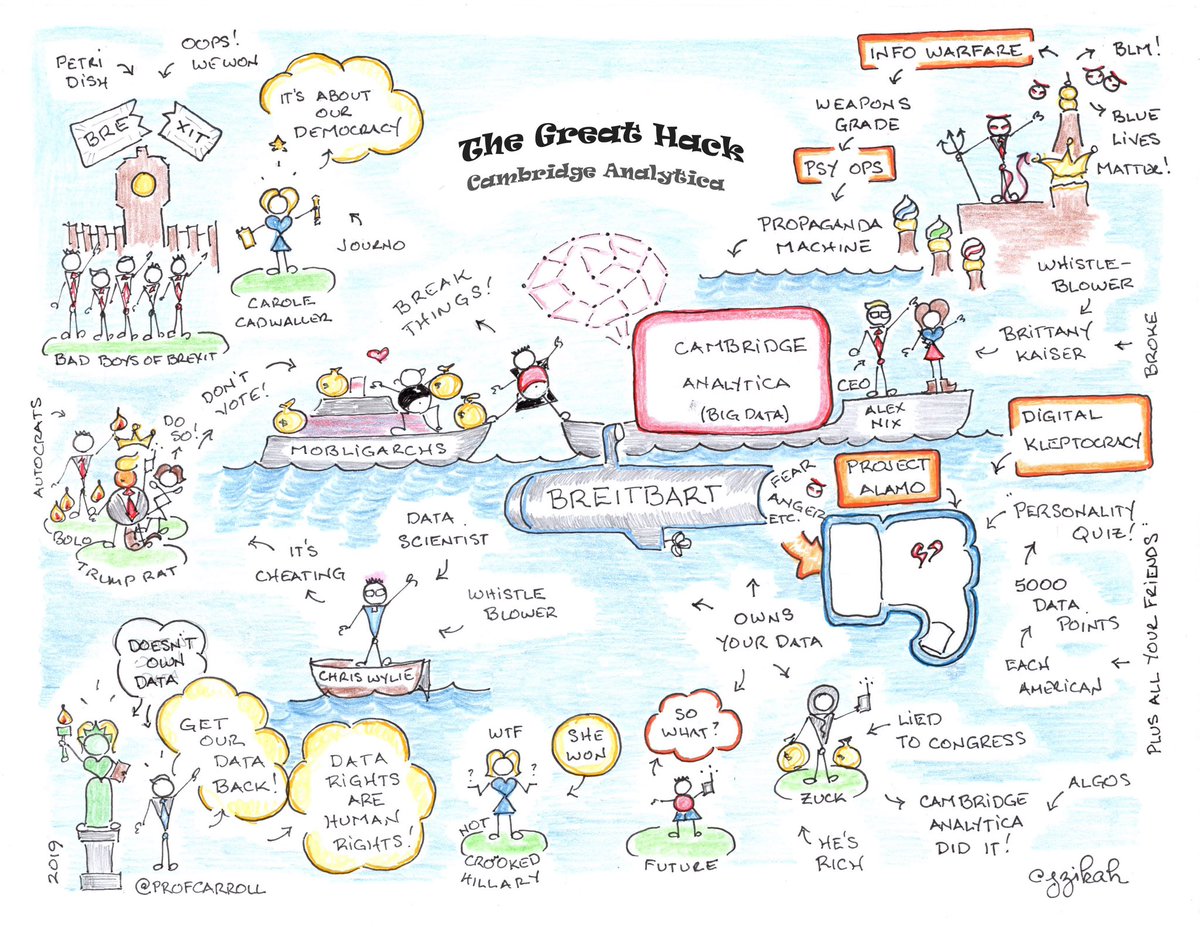 The Great Hack
Cambridge Analytica
PETRI
DISH
OOPS!
WE WON
BRE
XIT
BAD BOYS OF BREXIT
IT'S ABOUT
OUR
DEMOCRACY
JOURNO
CAROLE
CADWALLER
INFO WARFARE
BLM!
BLUE
LIVES
MATTER!
WEAPONS
GRADE
PSY OPS
PROPAGANDA
MACHINE
WHISTLE-
BLOWER
BRITTANY
KAISER
BROKE
BREAK
THINGS!
CAMBRIDGE
ANALYTICA
(BIG DATA)
CEO
ALEX
NIX
MOBLIGARCHS
DON'T
VOTE!
DO
SO!
AUTOCRATS
BOLO
TRUMP RAT
BREITBART
FEAR
ANGER
ETC.
PROJECT
ALAMO
DIGITAL
KLEPTOCRACY
"PERSONALITY
QUIZ!"
5000
DATA
POINTS
EACH
AMERICAN
PLUS ALL YOUR FRIENDS
DATA
SCIENTIST
IT'S
CHEATING
WHISTLE
BLOWER
CHRIS WYLIE
OWNS
YOUR DATA
DOESN'T
OWN
DATA
GET
OUR
DATA
BACK!
DATA
RIGHTS
ARE
HUMAN
RIGHTS!
2019
@PROFCARROLL
WTF
? ?
SHE
WON
NOT
CROOKED
HILLARY
SO
WHAT?
FUTURE
LIED
TO CONGRESS
ZUCK
HE'S
RICH
CAMBRIDGE
ANALYTICA
DID IT!
ALGOS
cgzikah